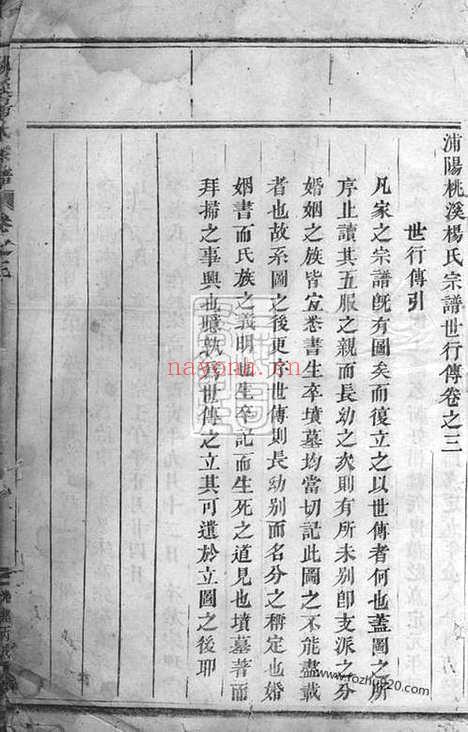 浦陽桃溪楊氏宗譜世行傳卷之三
世行傳引
凡家之宗譜旣有圖矣而復立之以世傳者何也蓋圖之所
序止讀其五服之親而長幼之次則有所未別卽支派之分
婚姻之族皆宜卷書生卒墳墓均當切記此圖之不能盡載
者也故系圖之後更字世傳則長幼別而名分之稱定也婚
姻書而氏族之義明也生卒記而生死之道見也墳墓著而
拜掃之事興也噫孰謂世傳之立其可遺於立圖之後耶
nayona.cn
www.fozhu920.com